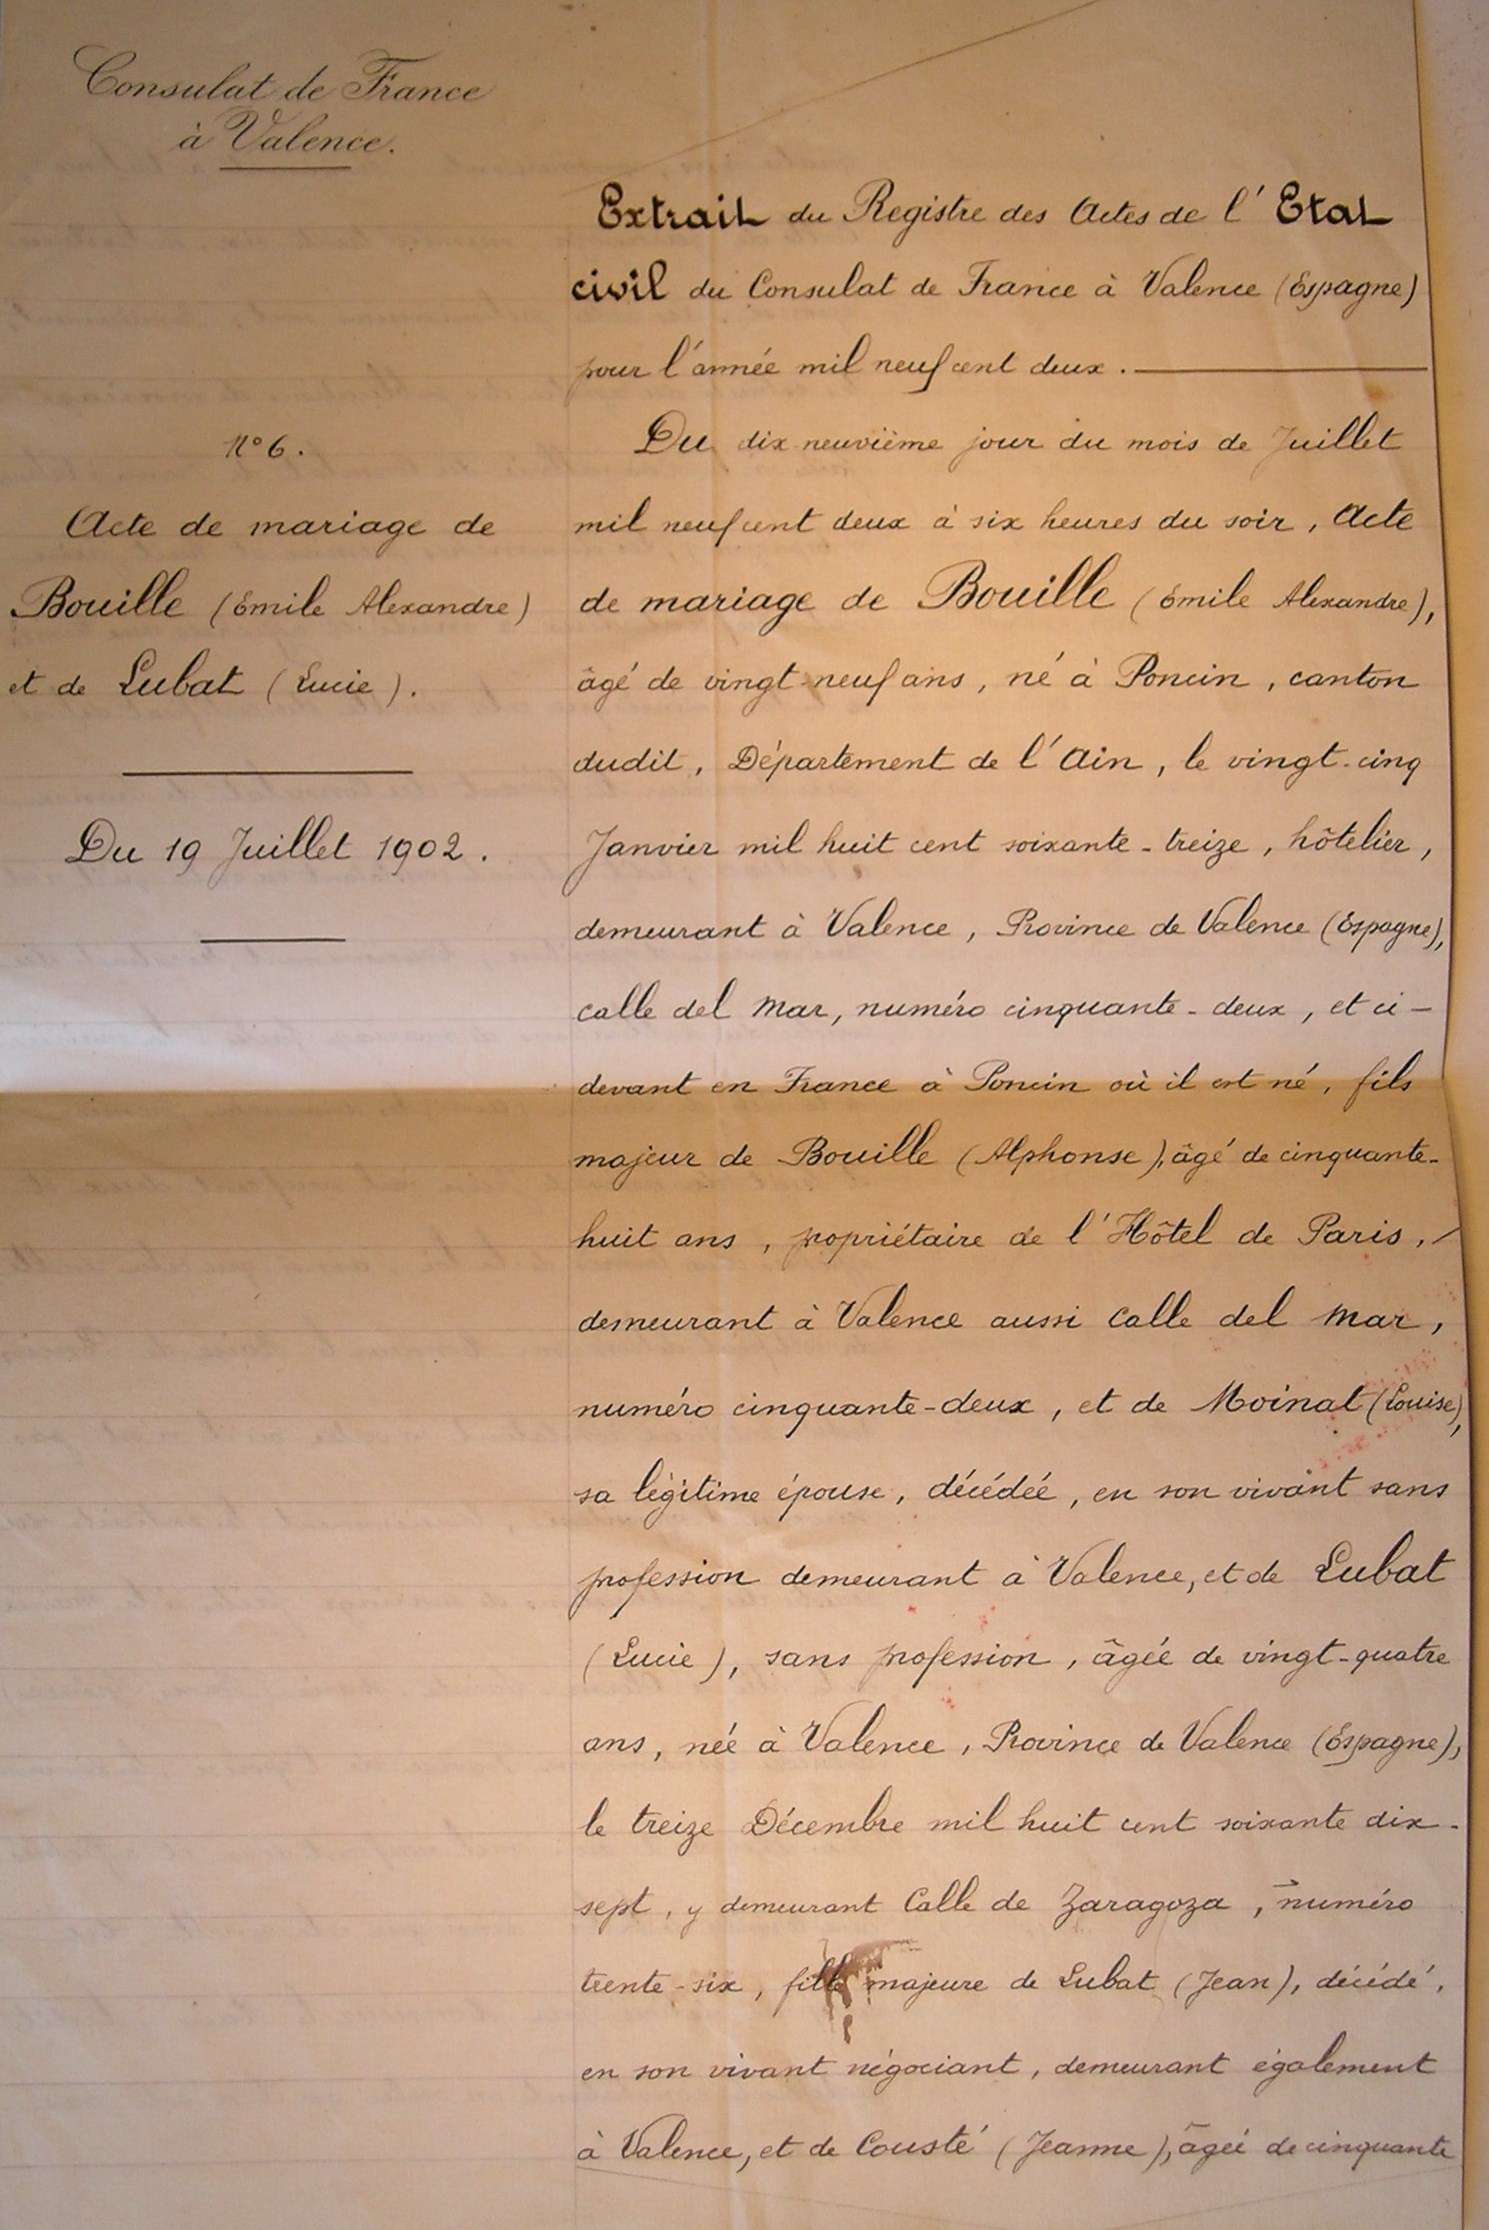 Consulat de France
à Valence.
N° 6.
Acte de mariage de
Bouille (Emile Alexandre)
et de Lubat (Lucie).
Du 19 Juillet 1902.
Extrait du Registre des Actes de l'Etat
civil du Consulat de France à Valence (Espagne)
pour l'année mil neuf cent deux.
Du dix neuvième jour du mois de Juillet
mil neuf cent deux à six heures du soir, Acte
de mariage de Bouille (Emile Alexandre),
âgé de vingt-neuf ans, né à Poncin, canton
dudit, Département de l'Ain, le vingt-cinq
Janvier mil huit cent soixante-treize, hôtelier,
demeurant à Valence, Province de Valence (Espagne),
calle del Mar, numéro cinquante-deux, et ci-
devant en France à Poncin où il est né, fils
majeur de Bouille (Alphonse), âgé de cinquante-
huit ans, propriétaire de l'Hôtel de Paris,
demeurant à Valence aussi Calle del Mar,
numéro cinquante-deux, et de Moinat (Louise),
sa légitime épouse, décédée, en son vivant sans
profession demeurant à Valence, et de Lubat
(Lucie), sans profession, âgée de vingt-quatre
ans, née à Valence, Province de Valence (Espagne),
le treize Décembre mil huit cent soixante dix-
sept, y demeurant Calle de Zaragoza, numéro
trente-six, fille majeure de Lubat (Jean), décédé,
en son vivant négociant, demeurant également
à Valence, et de Cousté (Jeanne), âgée de cinquante